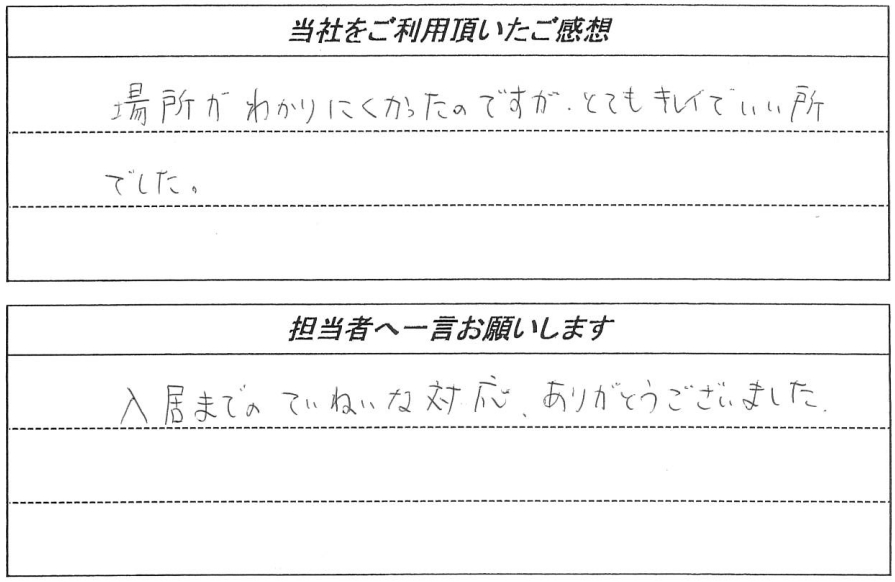 当社をご利用頂いたご感想
場所がわかりにくかったのですが、とてもキレイでいい所
でした。
担当者へ一言お願いします
入居までのていねいな対応、ありがとうございました。